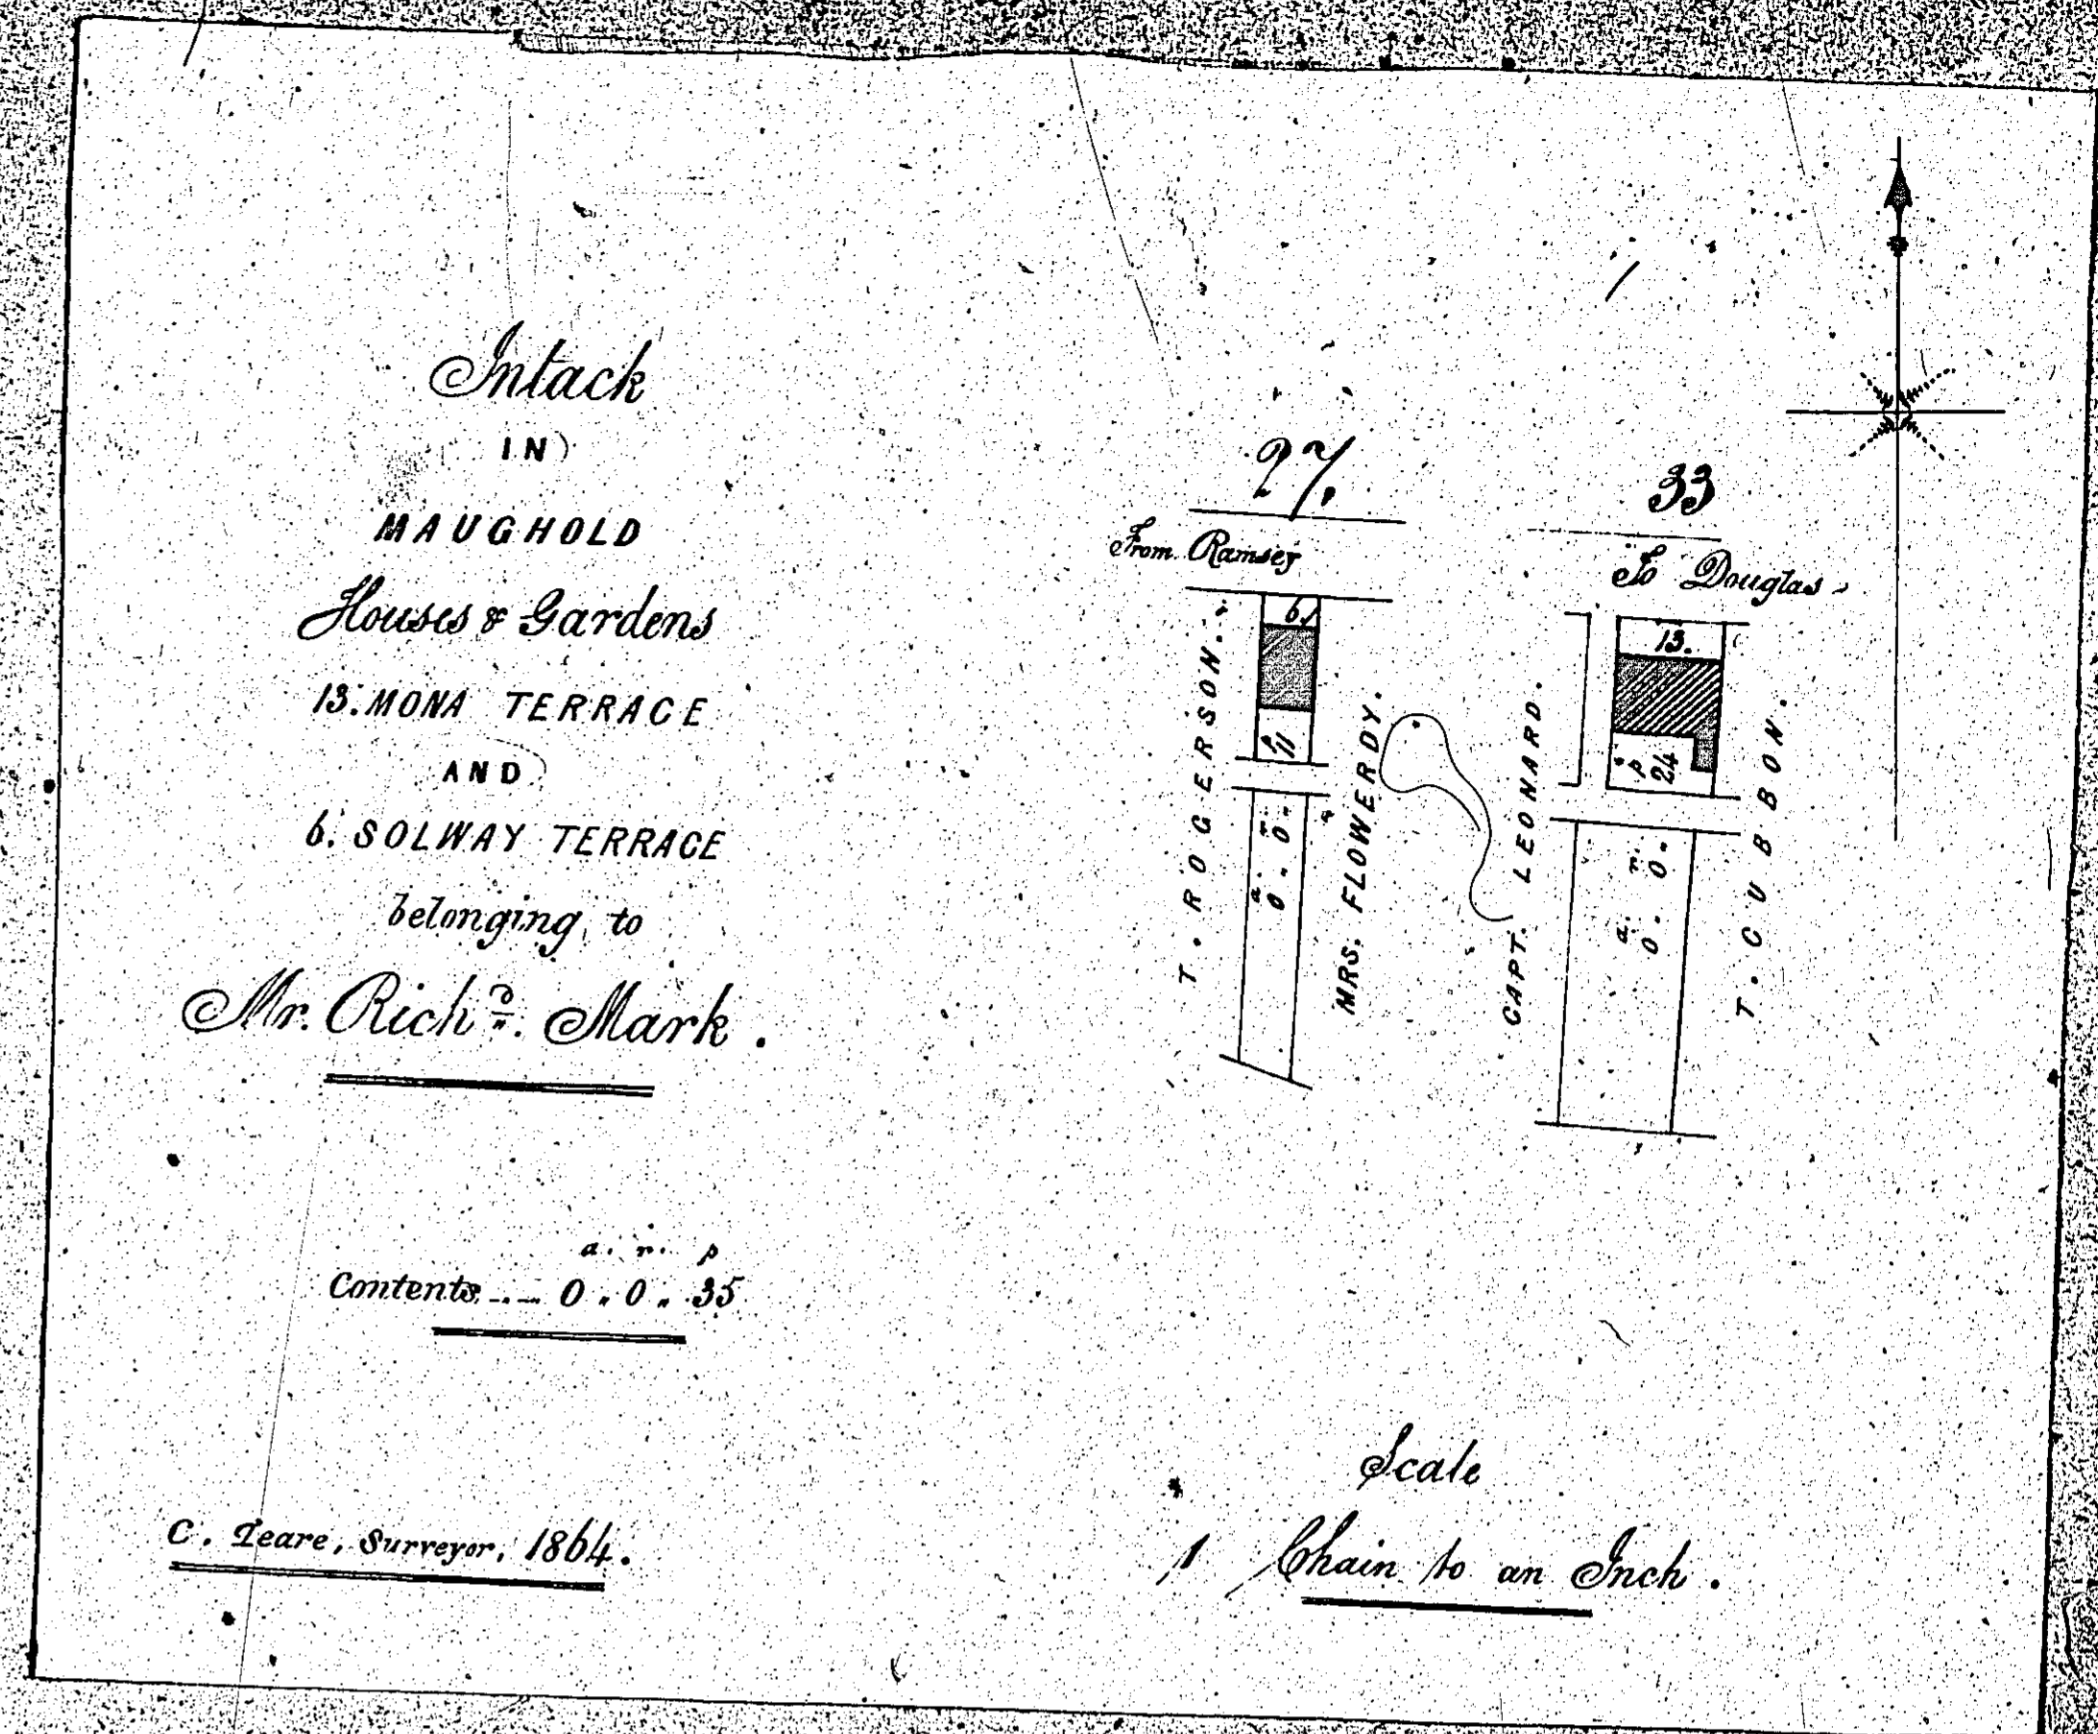 Intack
IN
MAUGHOLD
Houses & Gardens
13. MONA TERRACE
AND
6. SOLWAY TERRACE
belonging to
Mr. Richd. Mark.
a. r. p
Contents.... 0 . 0 . 35
C. Teare, Surveyor, 1864.
27.
33
From Ramsey
To Douglas
6.
13.
T. ROGERSON.
a. r. p
0 . 0 . 11
MRS. FLOWERDY.
CAPT. LEONARD.
a. r. p
0 . 0 . 24
T. CUBBON.
Scale
1 Chain to an Inch.